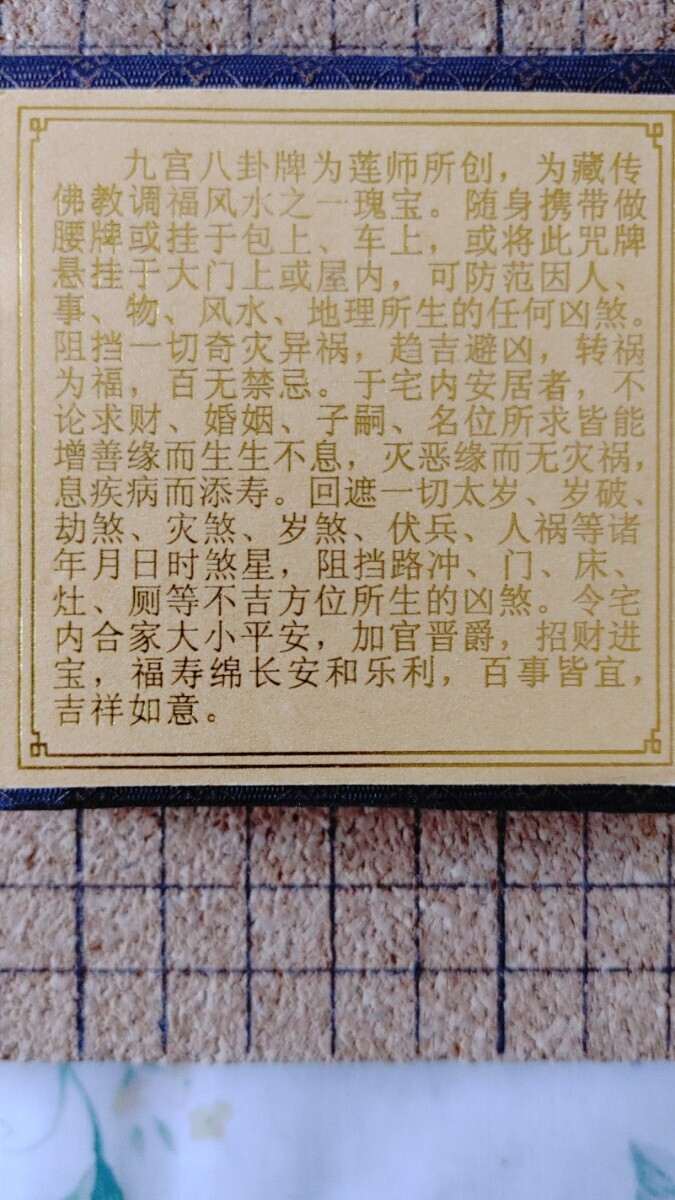 九宫八卦牌为莲师所创，为藏传
佛教调福风水之一瑰宝。随身携带做
腰牌或挂于包上、车上，或将此咒牌
悬挂于大门上或屋内，可防范因人、
事、物、风水、地理所生的任何凶煞。
阻挡一切奇灾异祸，趋吉避凶，转祸
为福，百无禁忌。于宅内安居者，不
论求财、婚姻、子嗣、名位所求皆能
增善缘而生生不息，灭恶缘而无灾祸，
息疾病而添寿。回遮一切太岁、岁破、
劫煞、灾煞、岁煞、伏兵、人祸等诸
年月日时煞星，阻挡路冲、门、床、
灶、厕等不吉方位所生的凶煞。令宅
内合家大小平安，加官晋爵，招财进
宝，福寿绵长安和乐利，百事皆宜，
吉祥如意。